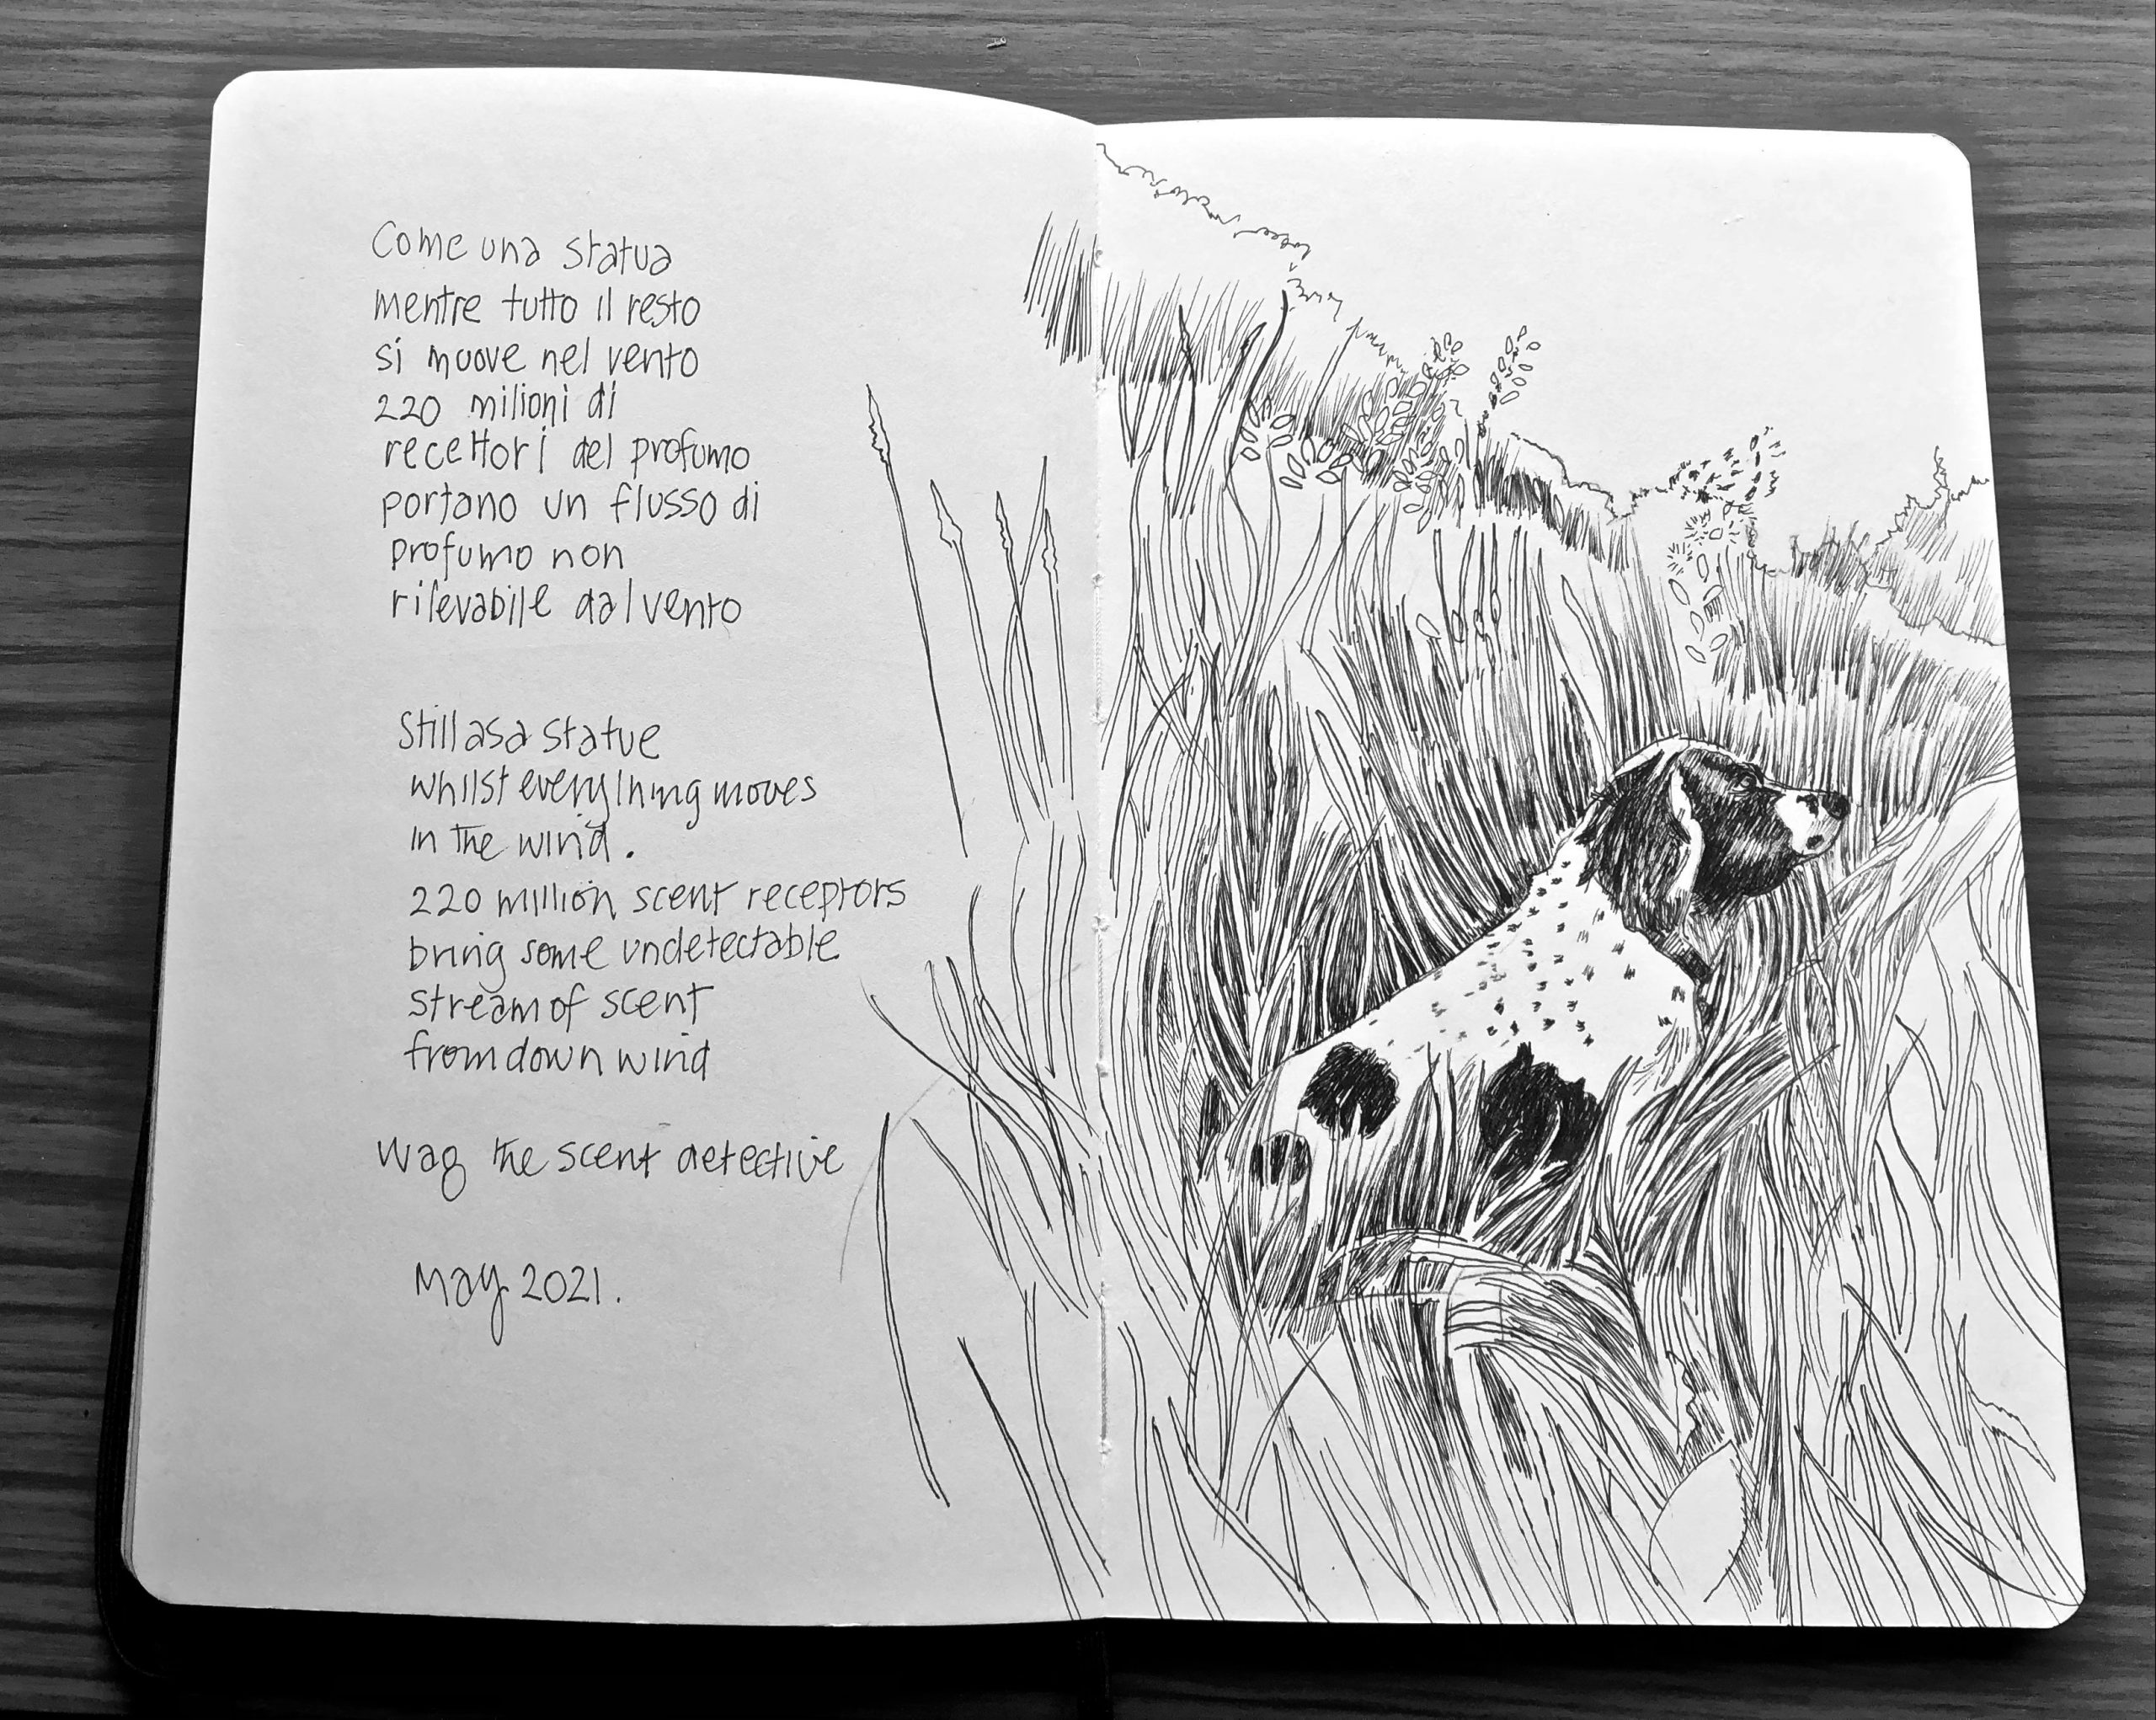 Come una statua
mentre tutto il resto
si muove nel vento
220 milioni di
recettori del profumo
portano un flusso di
profumo non
rilevabile dal vento
Still as a statue
whilst everything moves
in the wind.
220 million scent receptors
bring some undetectable
stream of scent
from down wind
Wag the scent detective
May 2021.